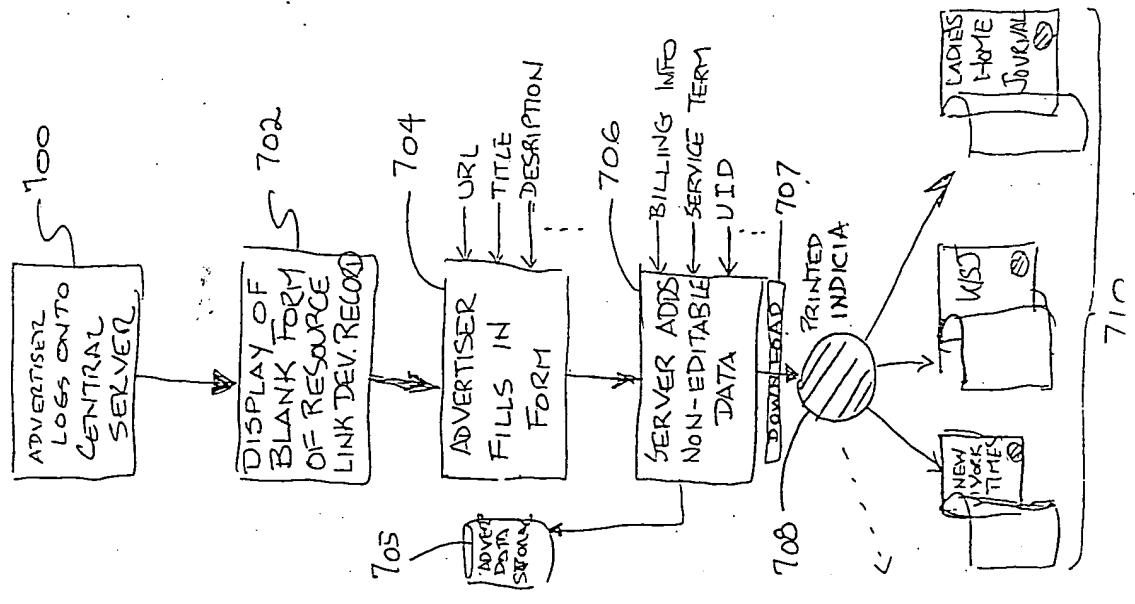 ADVERTISER
LOGS ONTO
CENTRAL
SERVER
700
DISPLAY OF
BLANK FORM
OF RESOURCE
LINK DEV. RECORD
702
ADVERTISER
FILLS IN
FORM
704
URL
TITLE
DESRIPTION
705
ADVER
DATA
SERVER ADDS
NON-EDITABLE
DATA
706
BILLING INFO
SERVICE TERM
UID
DOWNLOAD
707
PRINTED
INDICIA
708
NEW
YORK
TIMES
WSJ
LADIES
HOME
JOURNAL
710